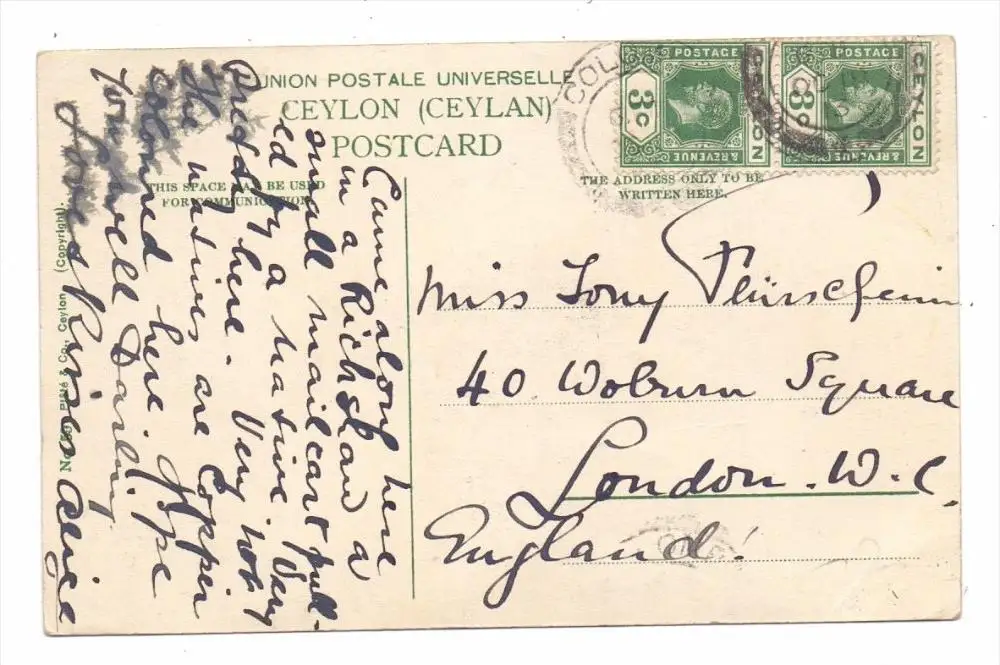 UNION POSTALE UNIVERSELLE
CEYLON (CEYLAN)
POSTCARD
THIS SPACE MAY BE USED
FOR COMMUNICATION.
THE ADDRESS ONLY TO BE
WRITTEN HERE.
POSTAGE
CEYLON
3c
& REVENUE
POSTAGE
CEYLON
3c
& REVENUE
COL
Came along here
in a Richshaw a
small mailcart pull-
ed by a native. Very
pretty here. Very hot
The natives are Copper
coloured here. Hope
You're well Darling
Love & Kisses
Miss Tony Flürscheim.
40 Woburn Square
London. W.C.
England.
Plâté & Co., Ceylon (Copyright).